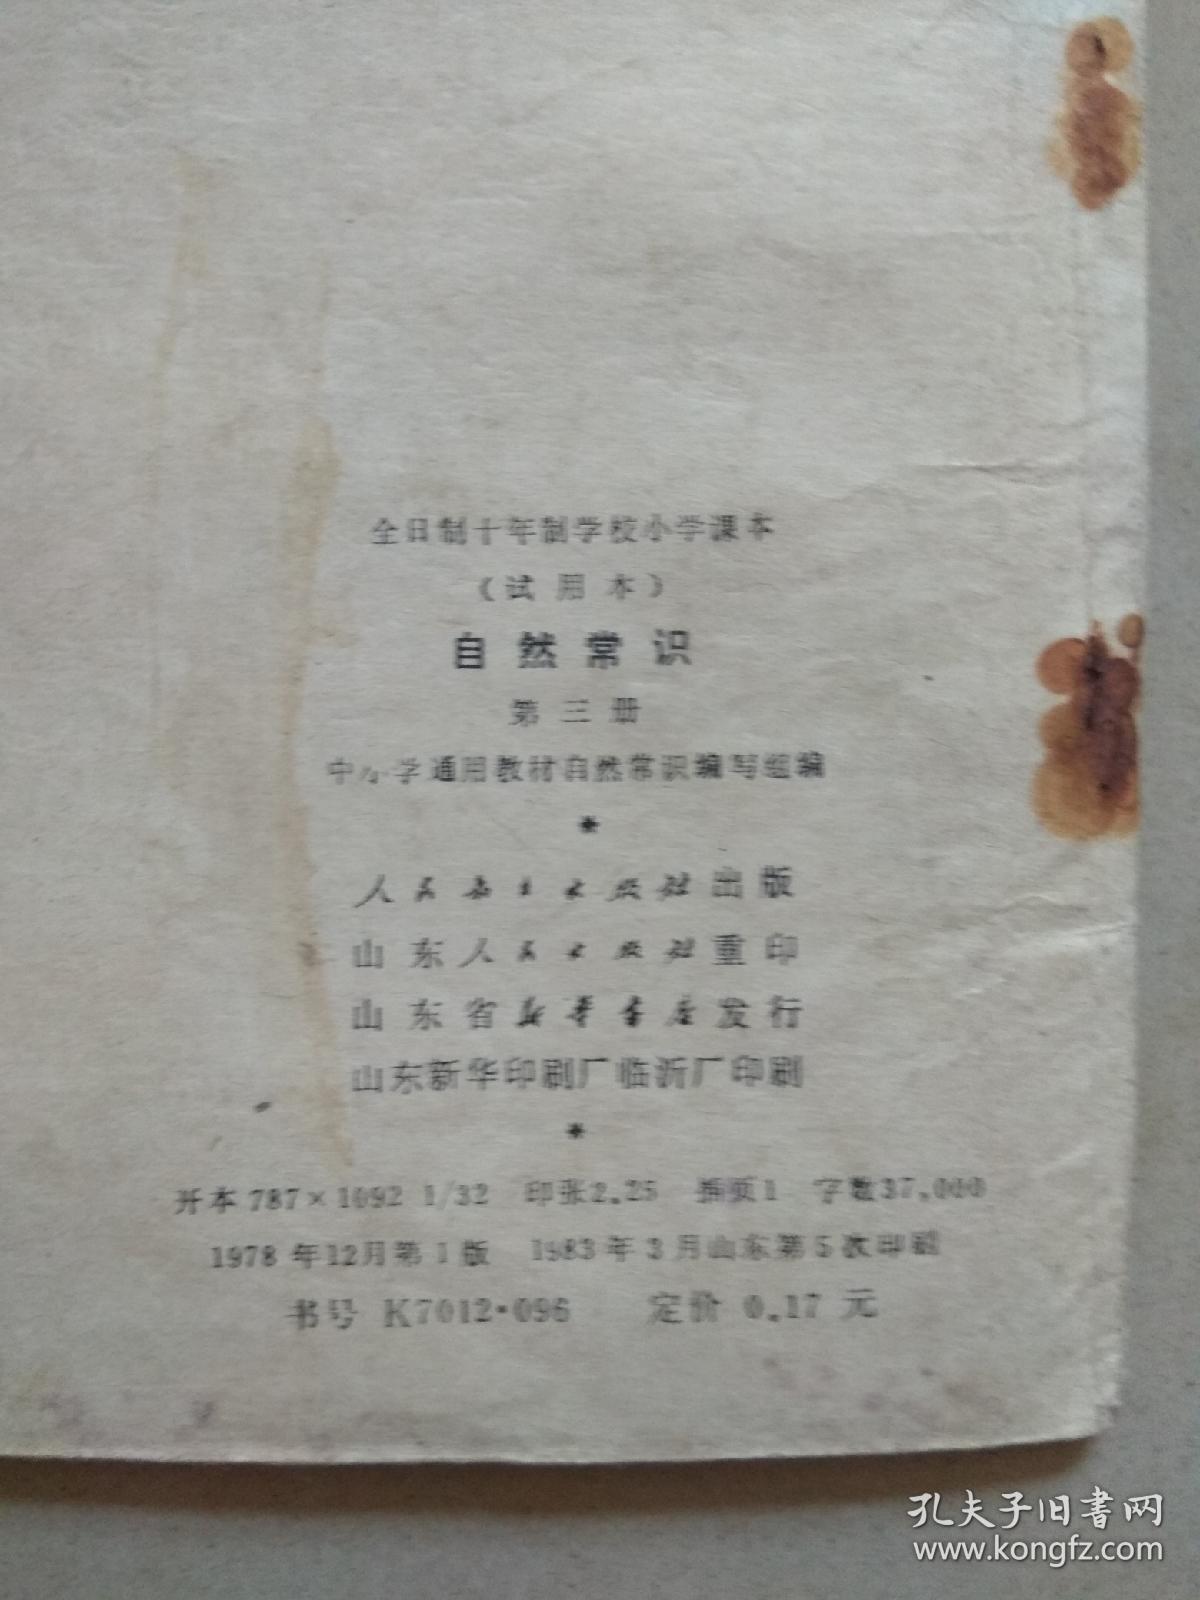 全日制十年制学校小学课本
（试用本）
自然常识
第三册
中小学通用教材自然常识编写组编
★
人民教育出版社出版
山东人民出版社重印
山东省新华书店发行
山东新华印刷厂临沂厂印刷
★
开本 787×1092 1/32 印张2.25 插页1 字数37,000
1978年12月第1版 1983年3月山东第5次印刷
书号 K7012·096 定价 0.17元
孔夫子旧书网
www.kongfz.com